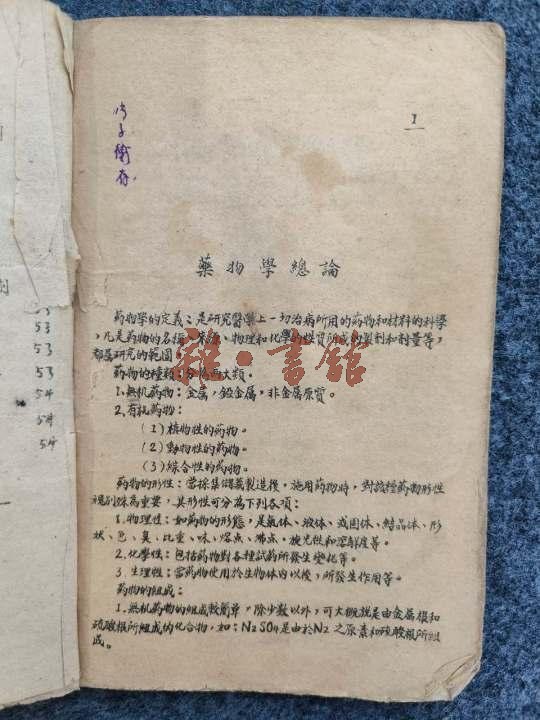 1
藥物學總論
药物学的定义：是研究醫藥上一切治病所用的药物和材料的科學
，凡是药物的名稱、來源、物理和化學的性質所成的製剂和剂量等，
都是研究的範圍
药物的種類：分為两大類：
1.無机药物：金属，鹼金属，非金属原質。
2.有机药物：
(1)植物性的药物。
(2)動物性的药物。
(3)綜合性的药物。
药物的形性：當採集儲藏製造後，施用药物時，對該種药物形性
識別殊為重要，其形性可分為下列各項：
1.物理性：如药物的形態，是氣体、液体、或固体、結晶体、形
狀、色、臭、比重、味、熔点、沸点、旋光性和溶解度等。
2.化學性：包括药物對各種試药所發生变化等。
3.生理性：當药物使用於生物体内以後，所發生作用等。
药物的組成：
1.無机药物的組成較簡單，除少数以外，可大概說是由金属根和
硫酸根所組成的化合物，如：N2SO4是由於N2之原素和硫酸根所組
成。
53
53
53
53
54
54
54
龍·書館